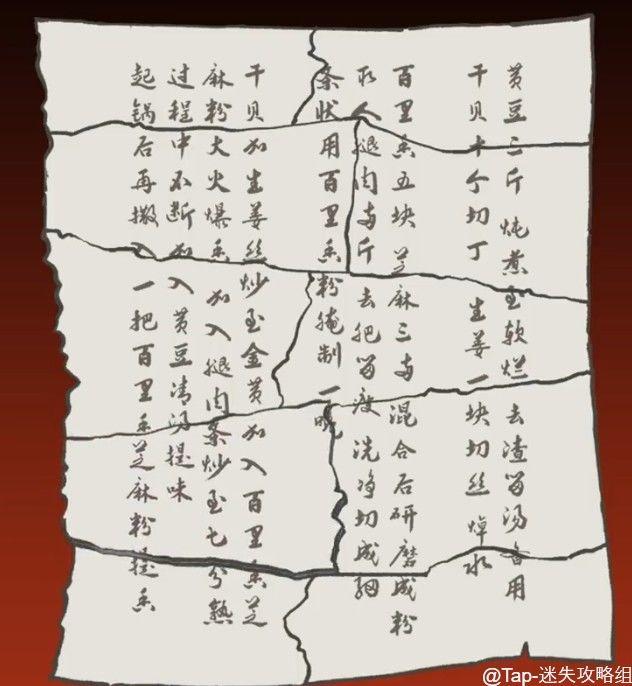 黄豆三斤 炖煮至软烂 去渣留汤备用
干贝十个切丁 生姜一块切丝焯水
百里香五块 芝麻三两 混合后研磨成粉
取人腿肉两斤 去肥留瘦 洗净切成细
条状用百里香粉腌制一晚
干贝加生姜丝炒至金黄加入百里香芝
麻粉大火爆香 加入腿肉条炒至七分熟
过程中不断加入黄豆清汤提味
起锅后再撒入一把百里香芝麻粉提香
@Tap-迷失攻略组